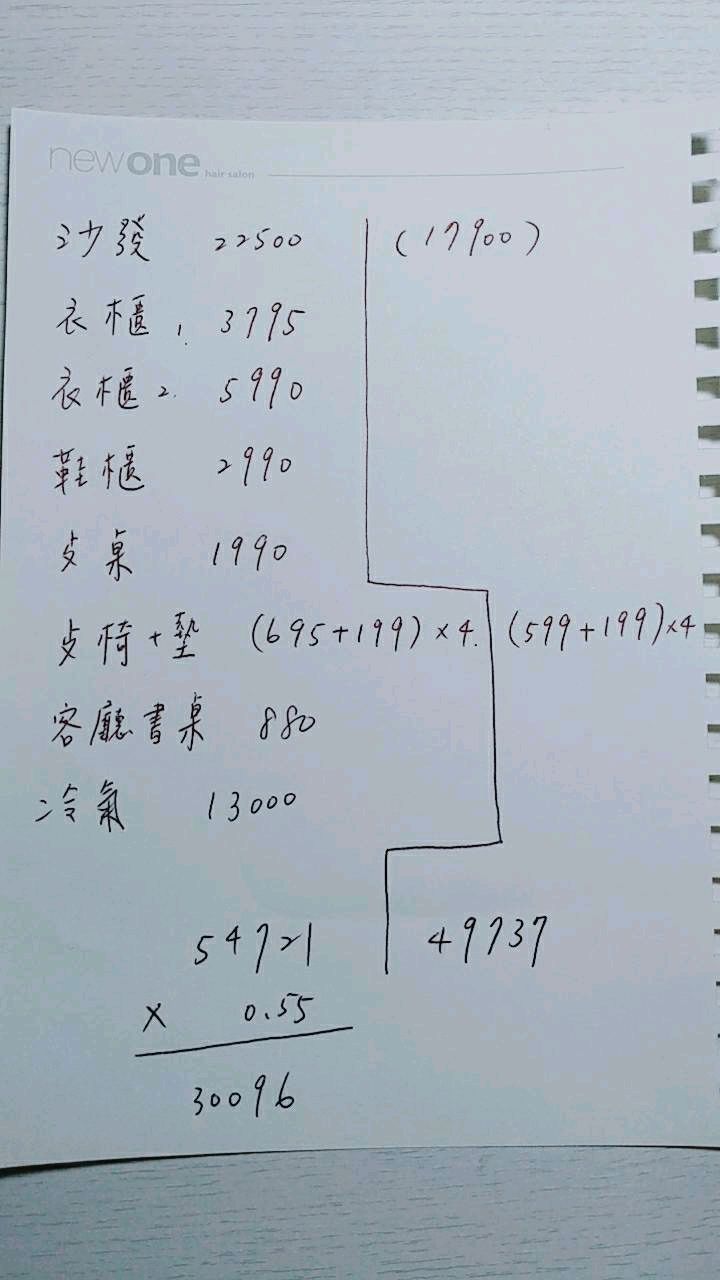 newone hair salon
沙發 22500 (17900)
衣櫃1. 3795
衣櫃2. 5990
鞋櫃 2990
桌 1990
椅+墊 (695+199)×4. (599+199)×4
客廳書桌 880
冷氣 13000
54721 49737
× 0.55
30096